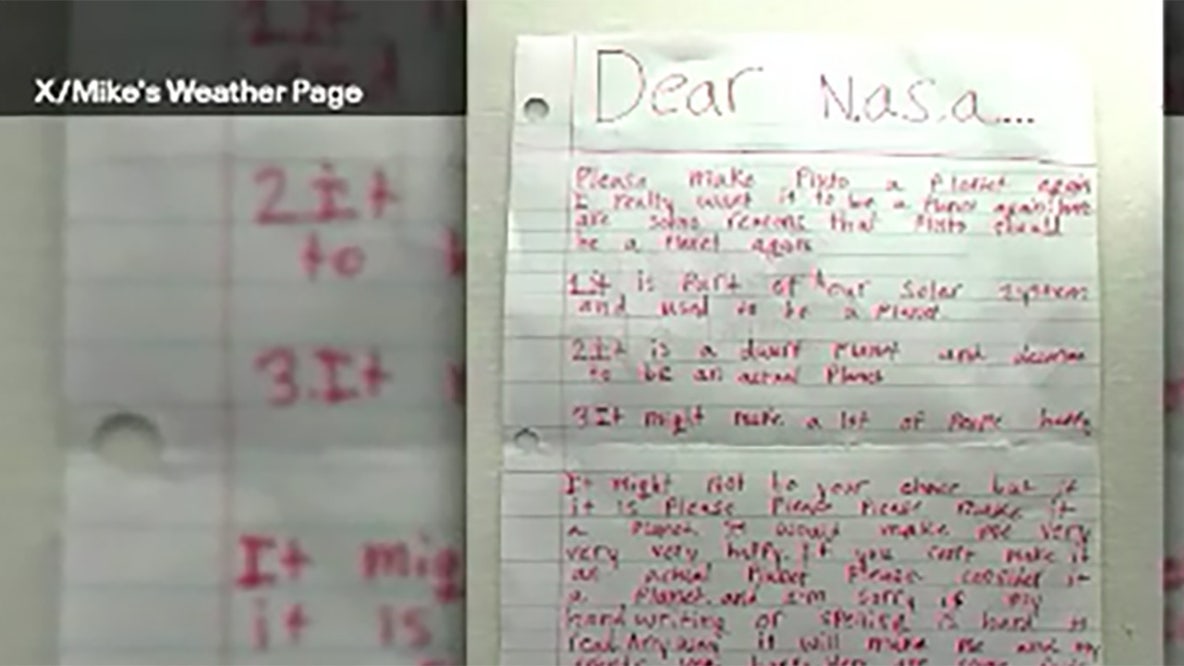 X/Mike's Weather Page
1It
and
2 It
to
3.It
It mig
it is
Dear N.a.s.a....
Please make Pluto a Planet again
I really want it to be a Planet again
are some reasons that Pluto should
be a Planet again
1 it is Part of our solar system
and used to be a Planet
2 It is a dwarf Planet and
to be an actual Planet
3 It might make a lot of People happy
It might not be your choice but if
it is Please Please Please make it
a Planet. It would make me very
very very happy. If you can't make it
an actual Planet Please consider it
a Planet. and I'm sorry if my
handwriting or is hard to
read Anyway it will make me and my